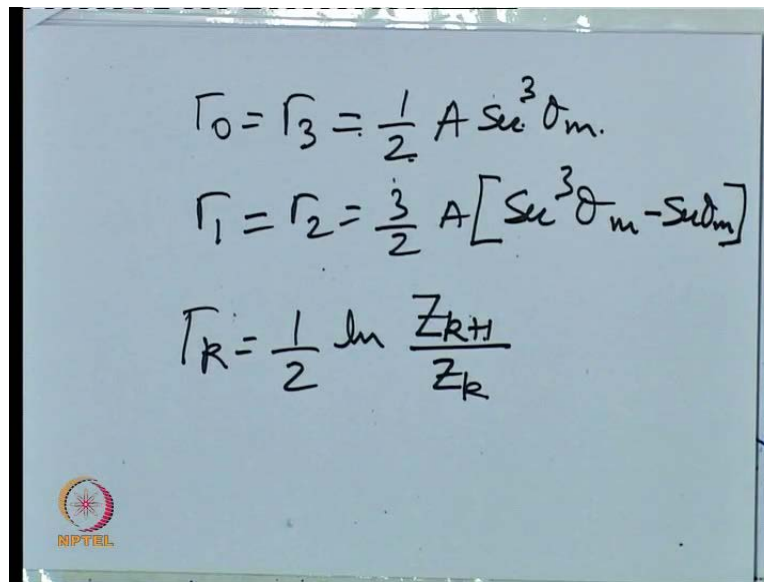 Γ₀ = Γ₃ = 1/2 A Sec³ θm.
Γ₁ = Γ₂ = 3/2 A [Sec³ θm – Sec θm]
Γk = 1/2 ln Zk+1/Zk
NPTEL